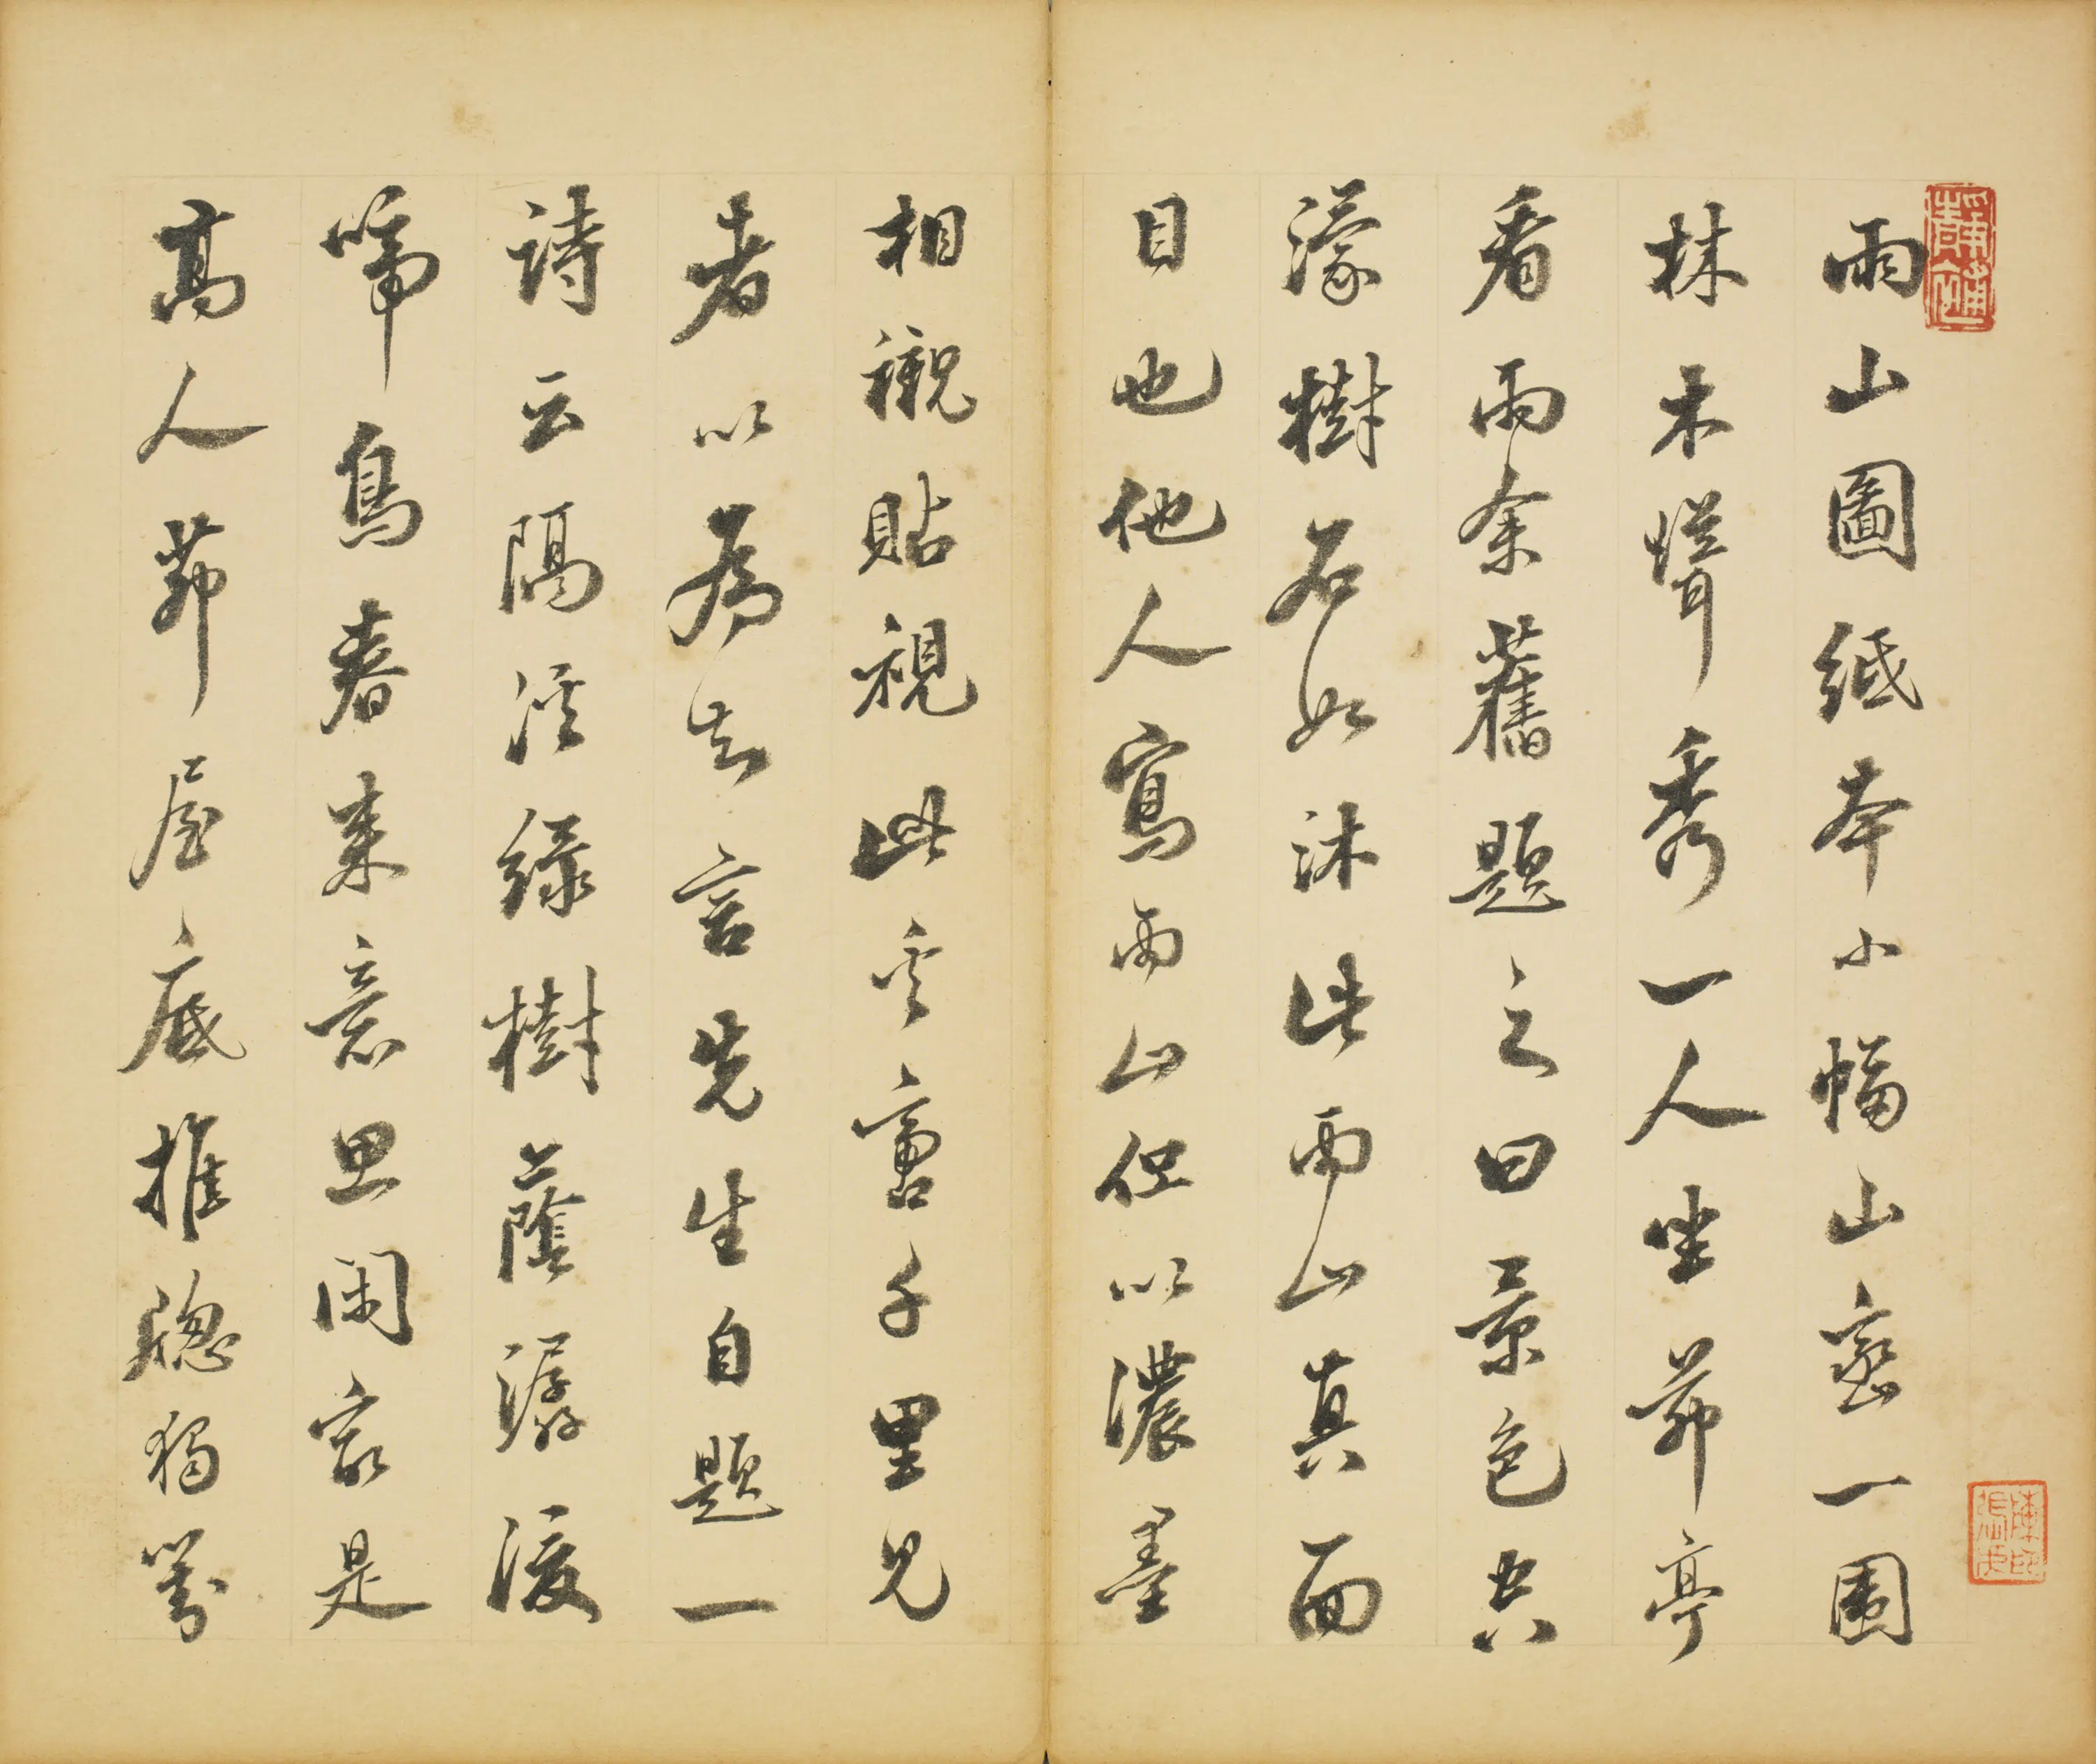 雨山圖紙本小幅山密一圍
林木聳秀一人坐茆亭
看雨余舊題之曰景色空
濛樹石如沐此雨山真面
目也他人寫雨山但以濃墨
相襯貼視此奚啻千里見
者以為知言先生自題一
詩云隔溪綠樹蔭潺湲
啼鳥春來意思閑㝡是
高人茆屋底推牕獨對